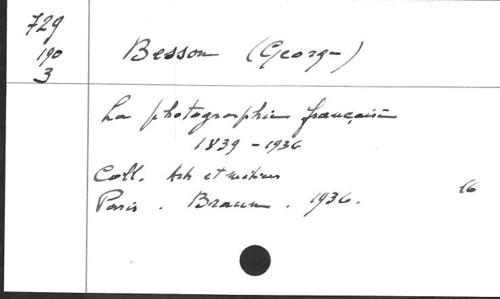 729
190
3
Besson (George)
La photographie française
1839 - 1936
Coll. Arts et métiers
Paris . Braun . 1936.
16